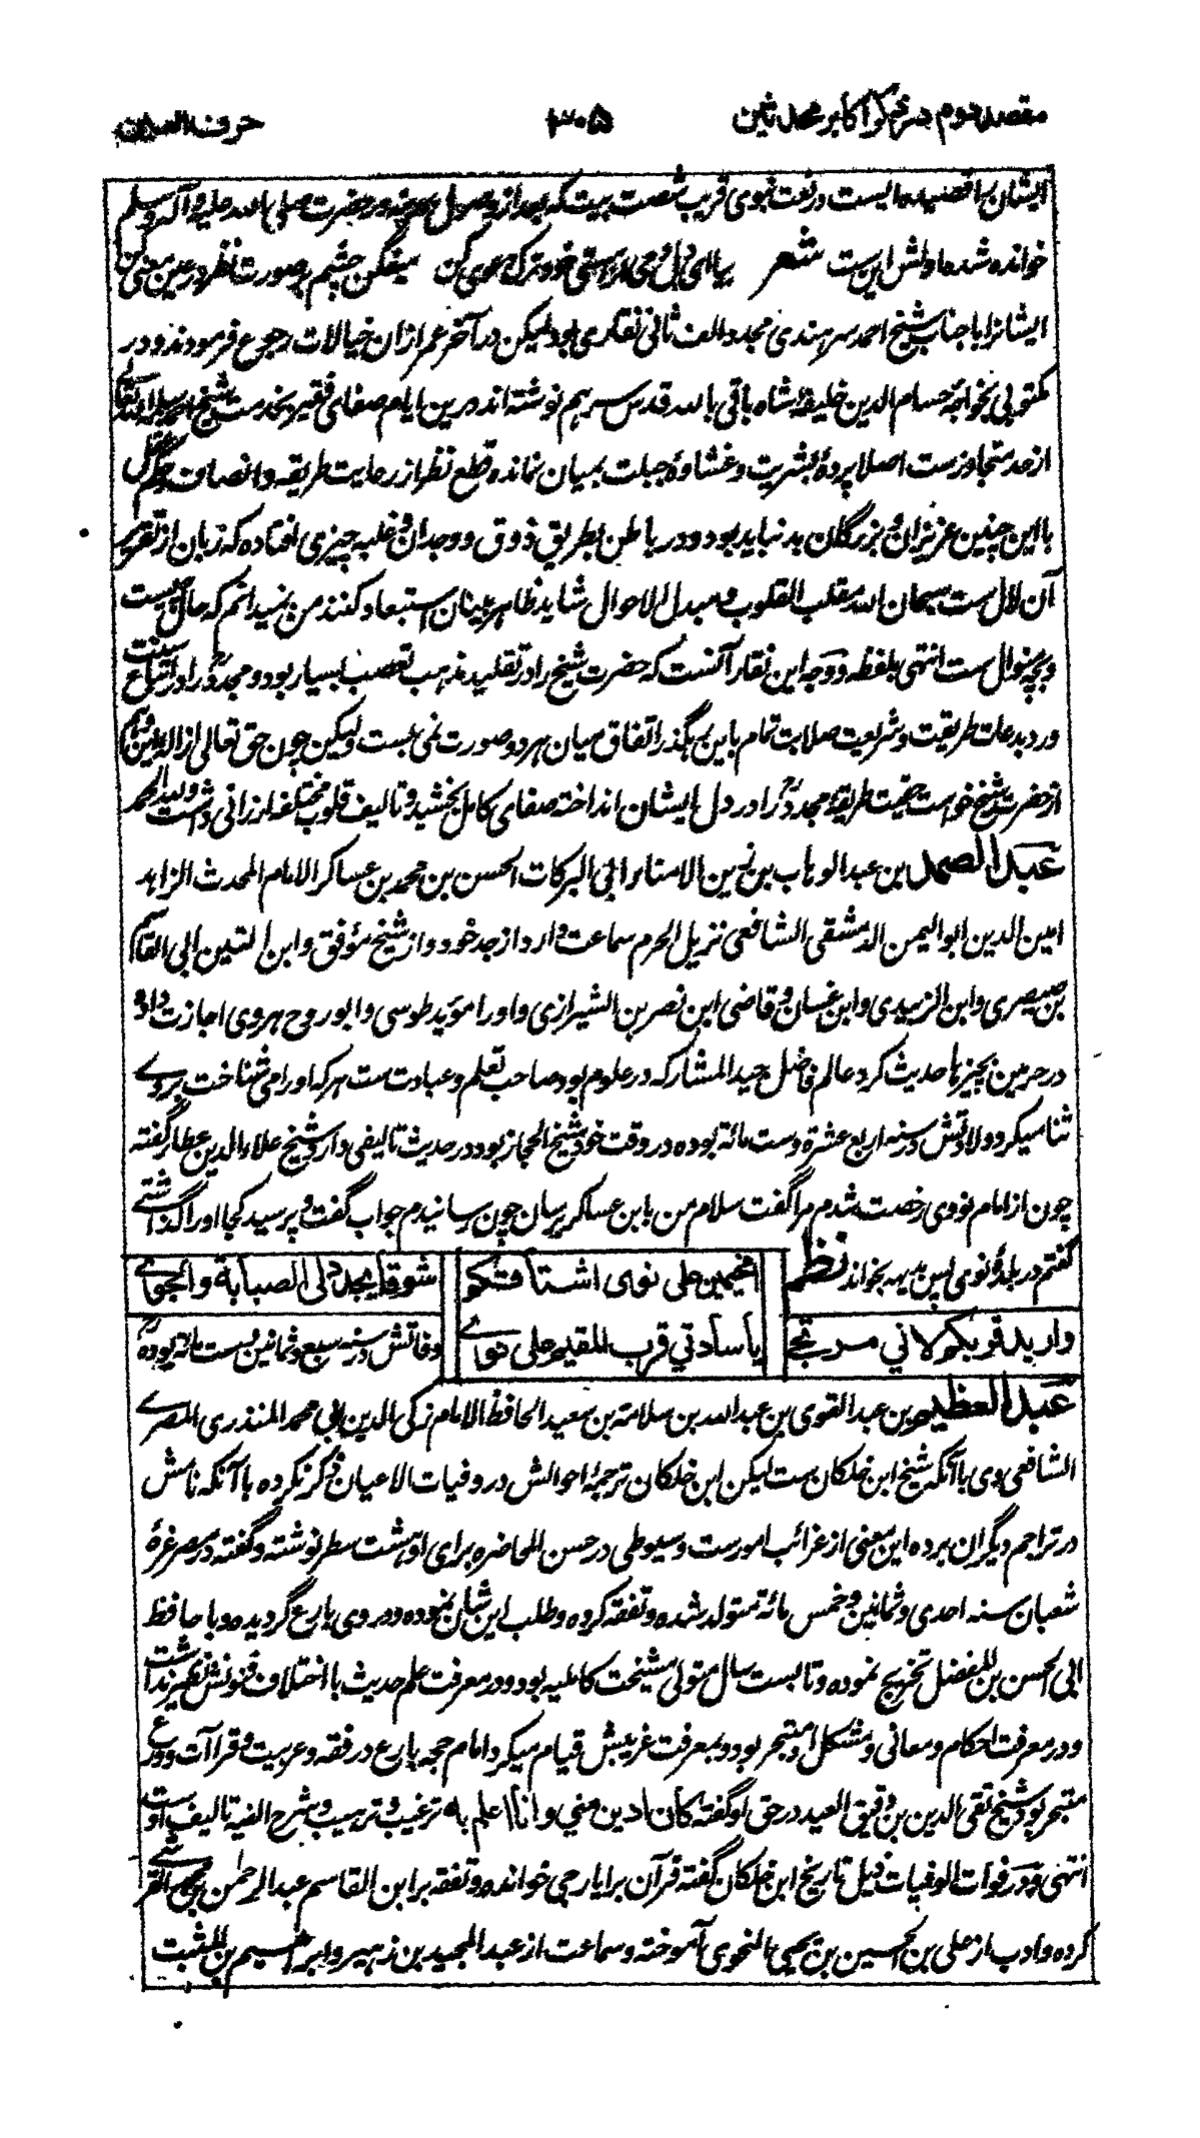 مقصد دوم در ذکر اکابر محدثین ۳۰۵ حرف العین
ایشان را قصیده ایست در نعت نبوی قریب شصت بیت که بعد از وصول بمدینه در حضرت صلی الله علیه وآله وسلم
خوانده شده اولش این ست شعر بیا ای دل دمی از هستی خود ترک دعوی کن میفگن چشم بر صورت نظر در عین معنی کن
ایشانرا با جناب شیخ احمد سرهندی مجدد الف ثانی نقاری بود لیکن در آخر عمر ازان خیالات رجوع فرمودند و در
مکتوبی بخواجه حسام الدین خلیفهٔ شاه باقی بالله قدس سرهم نوشته اند درین ایام صفای فقیر بخدمت شیخ احمد سلمه الله تعالی
از حد متجاوزست اصلا پردهٔ بشریت و غشاوهٔ جبلت بمیان نمانده قطع نظر از رعایت طریقه و انصاف و حکم عقل
با این چنین عزیزان و بزرگان بد نباید بود و در باطن بطریق ذوق و وجدان و غلبه چیزی افتاده که زبان از تقریر
آن لال ست سبحان الله مقلب القلوب و مبدل الاحوال شاید ظاهر بینان استبعاد کنند من نمیدانم که حال چیست
و بچه منوال ست انتهی بلفظه و وجه این نقار آنست که حضرت شیخ را در تقلید مذهب تعصب بسیار بود و مجددؒ را در اتباع سنت
و رد بدعات طریقت و شریعت صلابت تمام باین رهگذر اتفاق میان هر دو صورت نمی بست ولیکن چون حق تعالی ازاله این
از حضرت شیخ خواست حقیت طریقهٔ مجددؒ را در دل ایشان انداخته صفای کامل بخشید و تالیف قلوب مختلفه ارزانی داشت ولله الحمد
عبد الصمد بن عبد الوهاب بن زین الامناء ابی البرکات الحسن بن محمد بن عساکر الامام المحدث الزاهد
امین الدین ابو الیمن الدمشقی الشافعی نزیل الحرم سماعت دارد از جد خود و از شیخ موفق و ابن البن و ابی القاسم
بن صصری و ابن الزبیدی و ابن غسان و قاضی ابن نصر بن الشیرازی و او را موید طوسی و ابو روح هروی اجازت داد
در حرمین بچیزها حدیث کرد عالم فاضل جید المشارکه در علوم بود صاحب تعلم و عبادت ست هر که او را می شناخت بروے
ثنا میکرد ولادتش در سنه اربع عشرة وست مائة بوده در وقت خود شیخ الحجاز بود در حدیث تالیفی دارد شیخ علاء الدین عطار گفته
چون از امام نووی رخصت شدم مرا گفت سلام من بابن عساکر برسان چون رسانیدم جواب گفت و پرسید کجا او را گذاشتی
گفتم در بلدهٔ نوی پس بدیهه بخواند نظم امخیمین علی نوی اشتاقکم شوقا یجدد لی الصبابة والجوے
وارید قربکم لانی مرتجے یا سادتي قرب المقیم علی نواے وفاتش در سنه سبع و ثمانین و ست مائة بودهؒ
عبد العظیم بن عبد القوی بن عبد الله بن سلامة بن سعید الحافظ الامام زکی الدین ابی محمد المنذری المصرے
الشافعی وی با آنکه شیخ ابن خلکان ست لیکن ابن خلکان ترجمهٔ احوالش در وفیات الاعیان ذکر نکرده با آنکه نامش
در تراجم دیگران برده این معنی از غرائب امورست و سیوطی در حسن المحاضره برای او هشت سطر نوشته و گفته در مصر غرهٔ
شعبان سنه احدی و ثمانین و خمس مائة متولد شده و تفقه کرده و طلب این شان نموده و در وی بارع گردیده و با حافظ
ابی الحسن بن المفضل تخریج نموده و تا بست سال متولی مشیخت کاملیه بود و در معرفت علم حدیث با اختلاف فنونش نظیر نداشت
و در معرفت احکام و معانی و مشکل او متبحر بود و بمعرفت غریبش قیام میکرد امام حجه بارع در فقه و عربیت و قراآت و ورع
متبحر بود شیخ تقی الدین بن دقیق العید در حق او گفته کان ادین مني وانا اعلم به ترغیب و ترهیب و شرح الفیه تالیف اوست
انتهی و در فوات الوفیات ذیل تاریخ ابن خلکان گفته قرآن بر ایارحی خوانده و تفقه بر ابن القاسم عبد الرحمن بن محمد القرشے
کرده و ادب از علی بن الحسین بن یحیی النحوی آموخته و سماعت از عبد المجید بن زهیر و ابراهیم بن المثبت